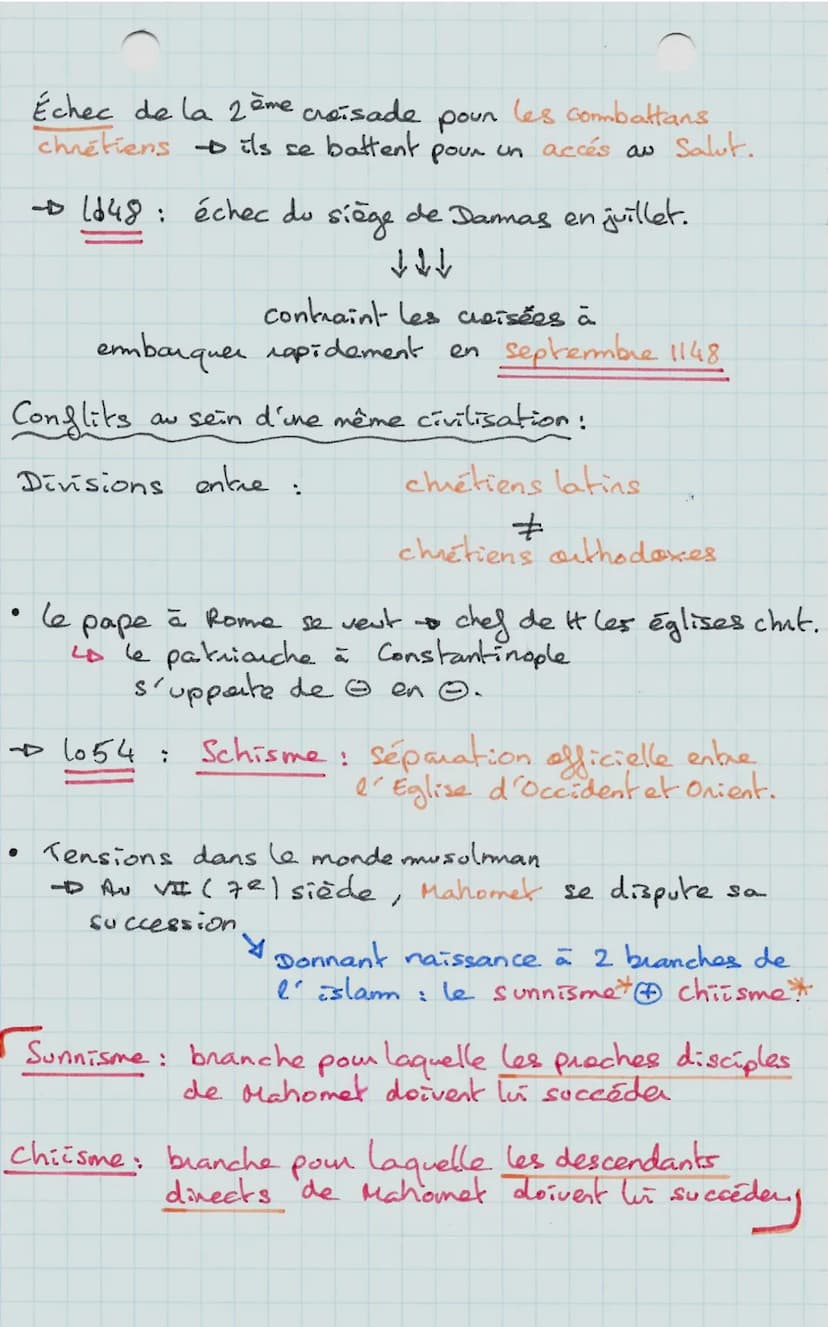 Échec de la 2ème croisade pour les combattans
chrétiens → ils se battent pour un accés au Salut.
→ 1148 : échec du siège de Damas en juillet.
↓↓↓
contraint les croisées à
embarquer rapidement en septembre 1148
Conflits au sein d'une même civilisation :
Divisions entre : chrétiens latins
≠
chrétiens orthodoxes
• le pape à Rome se veut → chef de tt les églises chrt.
↳ le patriarche à Constantinople
s'upporte de ⊖ en ⊖.
→ 1054 : Schisme : séparation officielle entre
l'Église d'Occident et Orient.
• Tensions dans le monde musulman
→ Au VII (7e) siècle, Mahomet se dispute sa
succession
↘ Donnant naissance à 2 branches de
l'islam : le sunnisme* ⊕ chiisme*.
Sunnisme : branche pour laquelle les proches disciples
de Mahomet doivent lui succéder
Chiisme : branche pour laquelle les descendants
directs de Mahomet doivent lui succéder